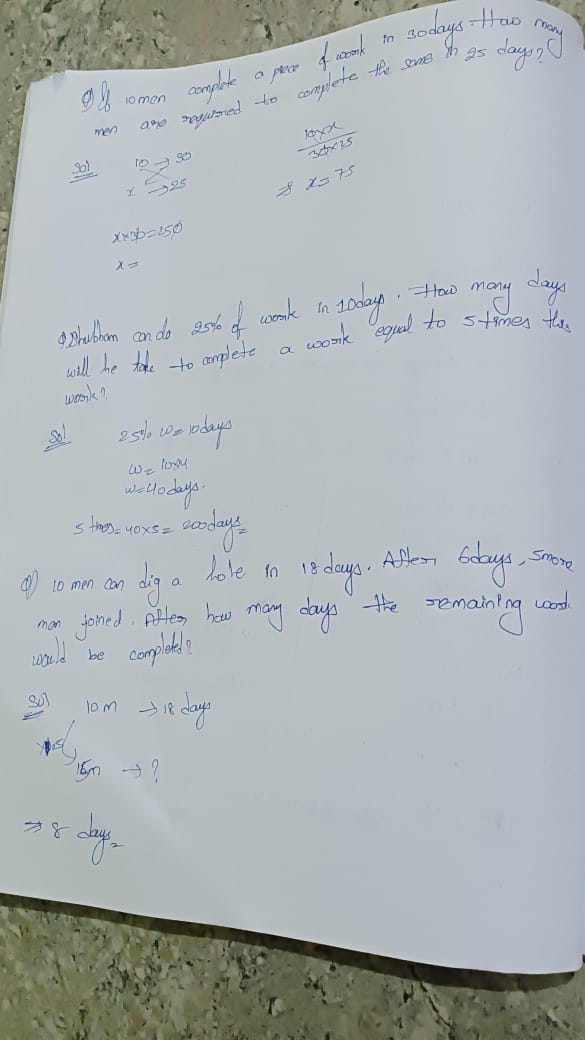 Q) If 10 men complete a piece of work in 30 days. How many
men are required to complete the same in 25 days?
Sol 10 → 30
x → 25
10×x
30×25
⇒ x = 75
x×30=250
x =
Q. Shubham can do 25% of work in 10 days. How many days
will he take to complete a work equal to 5 times this
work?
Sol 25% w = 10 days
w = 10×4
w = 40 days.
5 times = 40×5 = 200 days
Q) 10 men can dig a hole in 18 days. After 6 days, 5 more
men joined. After how many days the remaining work
would be completed?
Sol 10 m → 18 days
15m → ?
⇒ 8 days